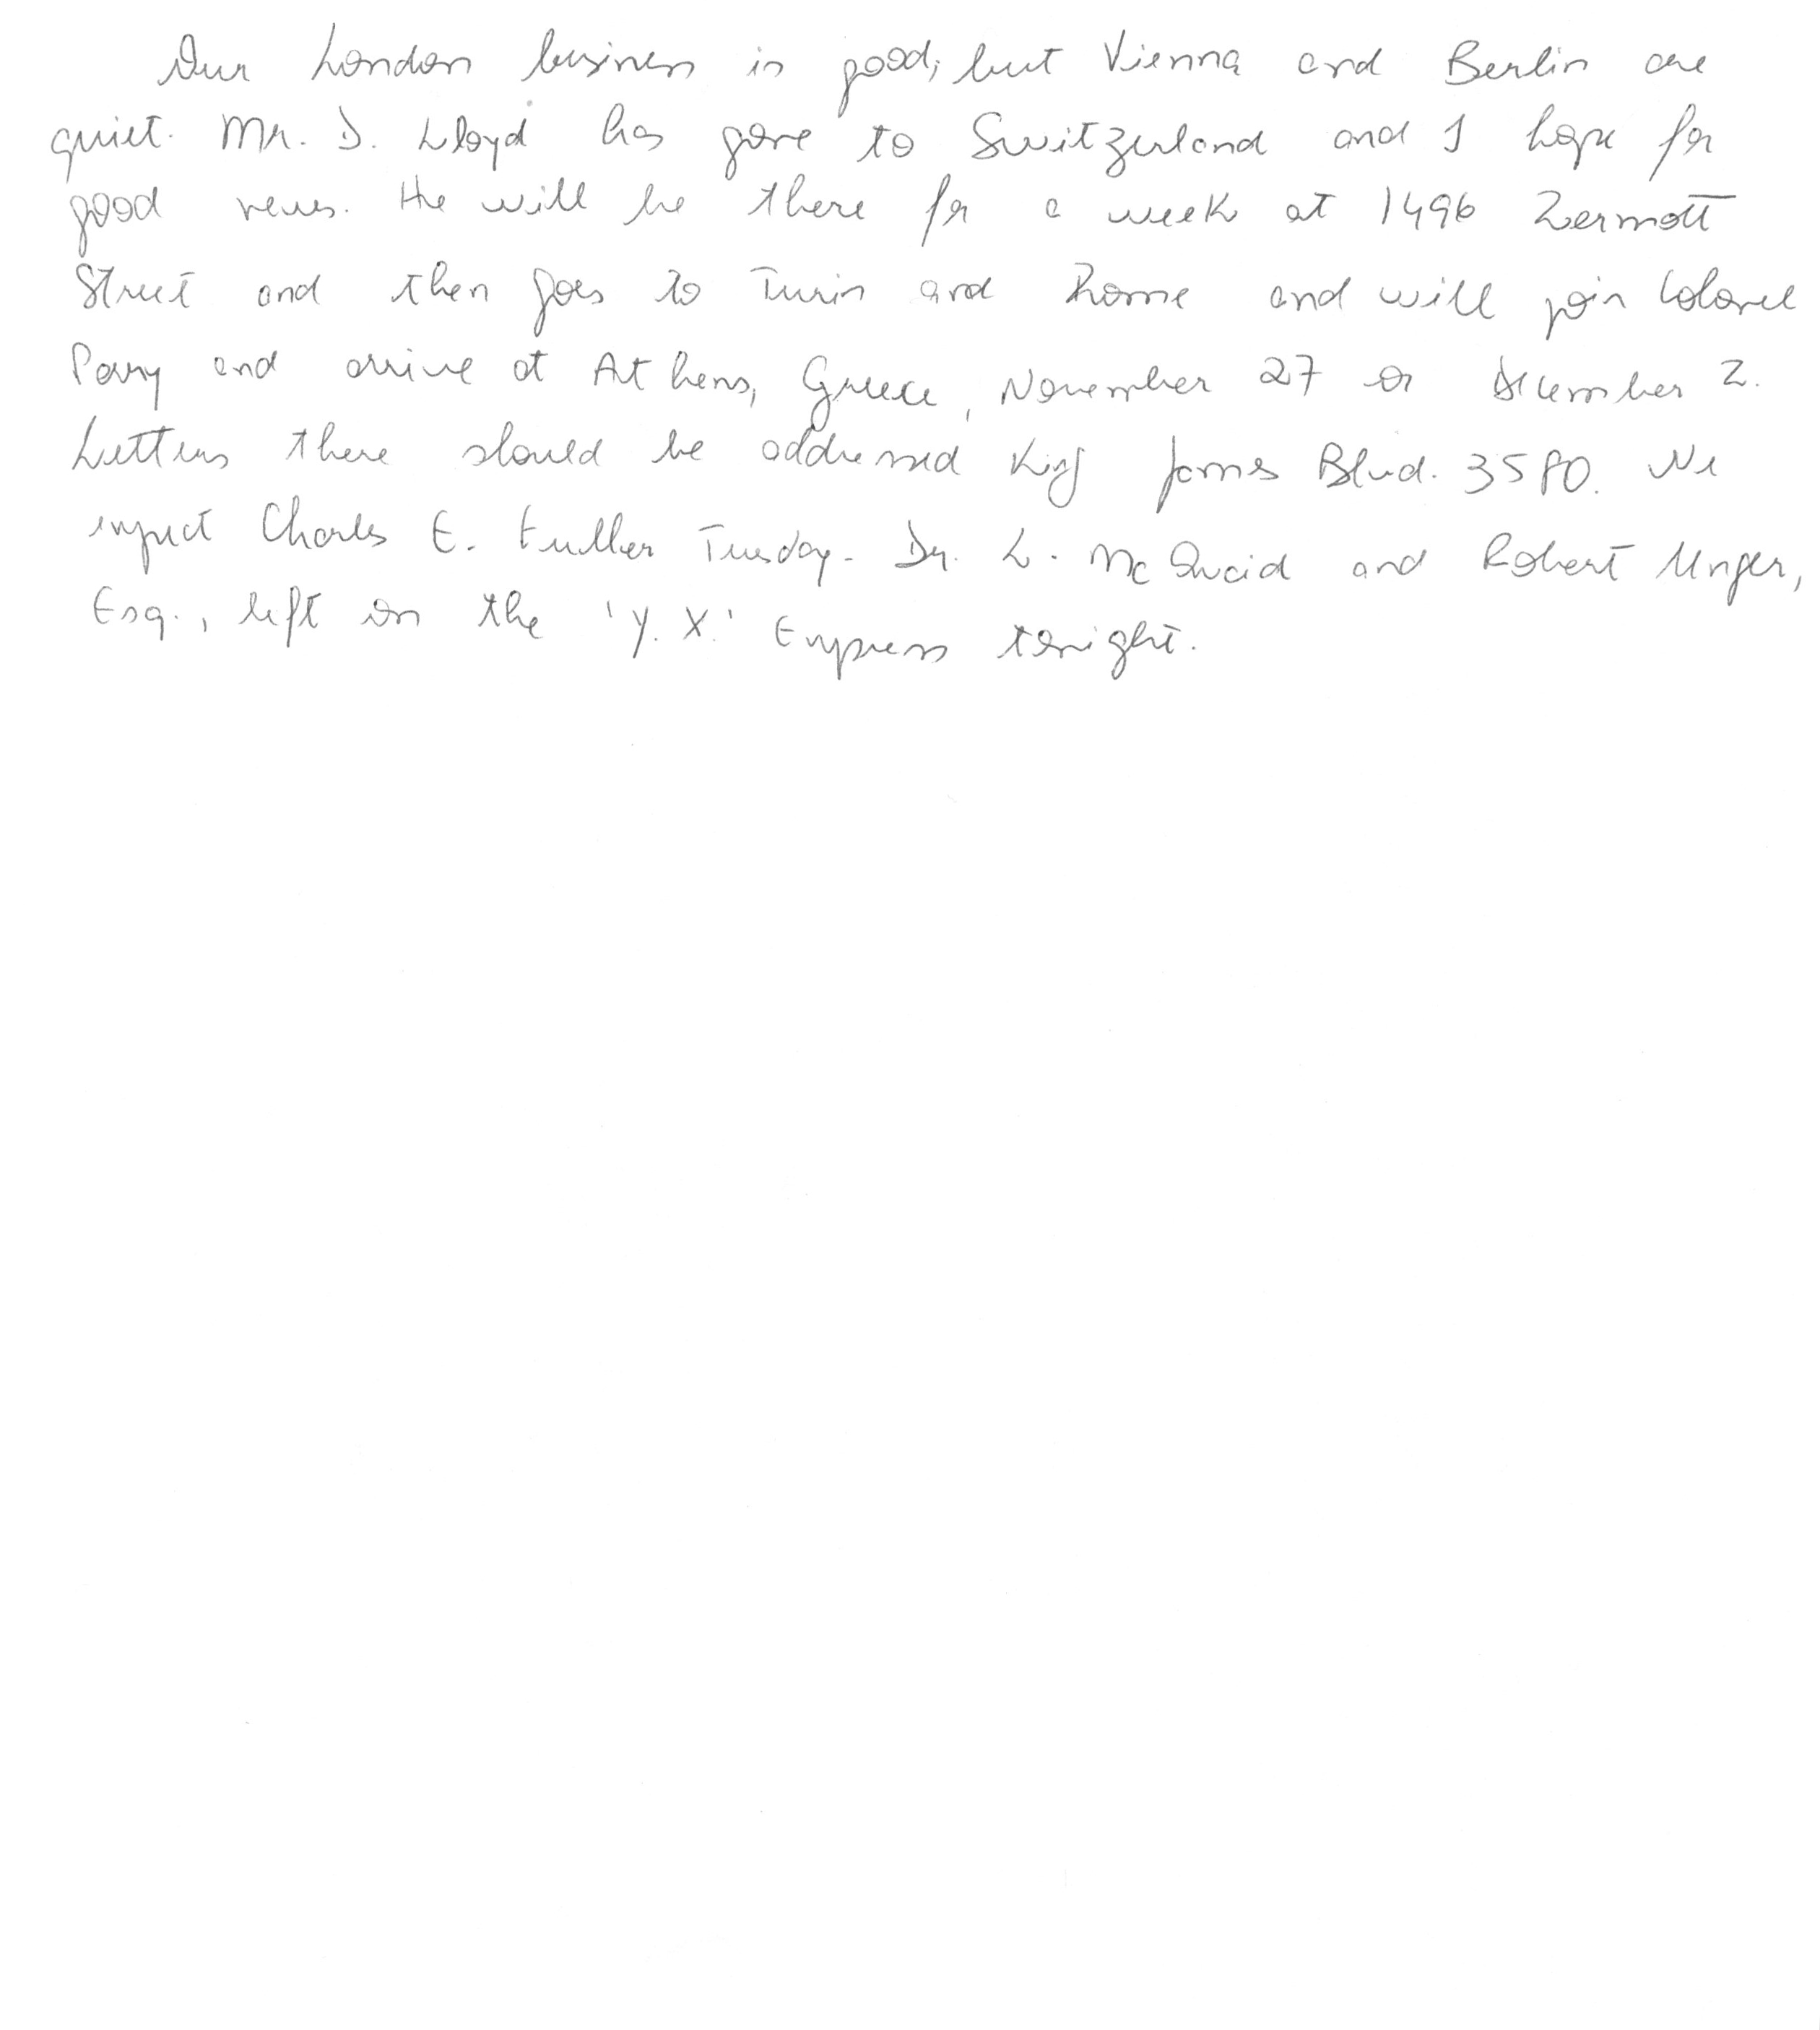 Our London business is good, but Vienna and Berlin are
quiet. Mr. D. Lloyd has gone to Switzerland and I hope for
good news. He will be there for a week at 1496 Zermott
Street and then goes to Turin and Rome and will join Colonel
Parry and arrive at Athens, Greece, November 27 or December 2.
Letters there should be addressed King James Blvd. 3580. We
expect Charles E. Fuller Tuesday. Dr. L. McQuaid and Robert Unger,
Esq., left on the 'Y.X.' Express tonight.